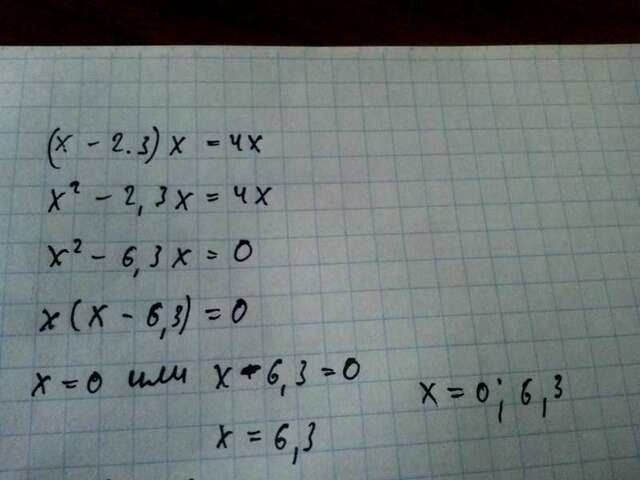 (x - 2.3) x = 4x
x² - 2,3x = 4x
x² - 6,3x = 0
x(x - 6,3) = 0
x = 0 или x - 6,3 = 0
x = 6,3
x = 0; 6,3